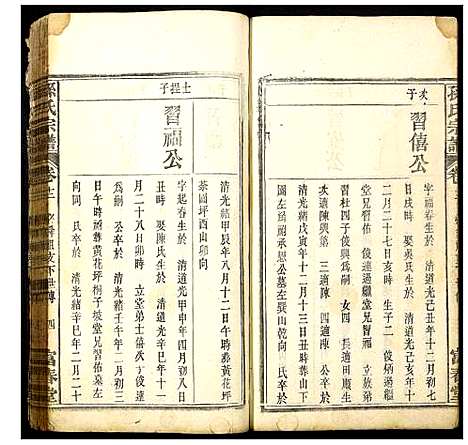 孫氏宗譜
卷
次子
習僖公
字福春生於 清道光己丑年十二月初七
日戌時 娶 氏生於 清道光己亥年十
二月二十七日亥時 生子二 立族弟
堂兄習佑 俊達過繼
習杜四子俊興為嗣 女四 長適田慶生
次適陳興 三適陳 四適陳 公卒於
清光緒戊寅年十二月十三日
圖左為照承恩公墓左巽山乾向 氏卒於
清光緒甲辰年八月十二日午時葬黃花坪
茶園坪酉山卯向
士提子
習福公
字起春生於 清道光甲申年四月初八日
丑時 娶陳氏生於 清道光辛丑年十
月二十八日卯時 立堂弟士僖次子俊達
為嗣 公卒於 清光緒壬午年二月初三
日午時葬黃花坪桐子坡堂兄習佑墓左
向同 氏卒於 清光緒辛巳年二月二十
孫氏宗譜
卷十二
四
富春堂
富春堂